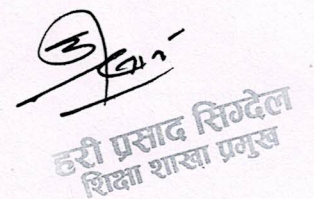 हरी प्रसाद सिग्देल
शिक्षा शाखा प्रमुख